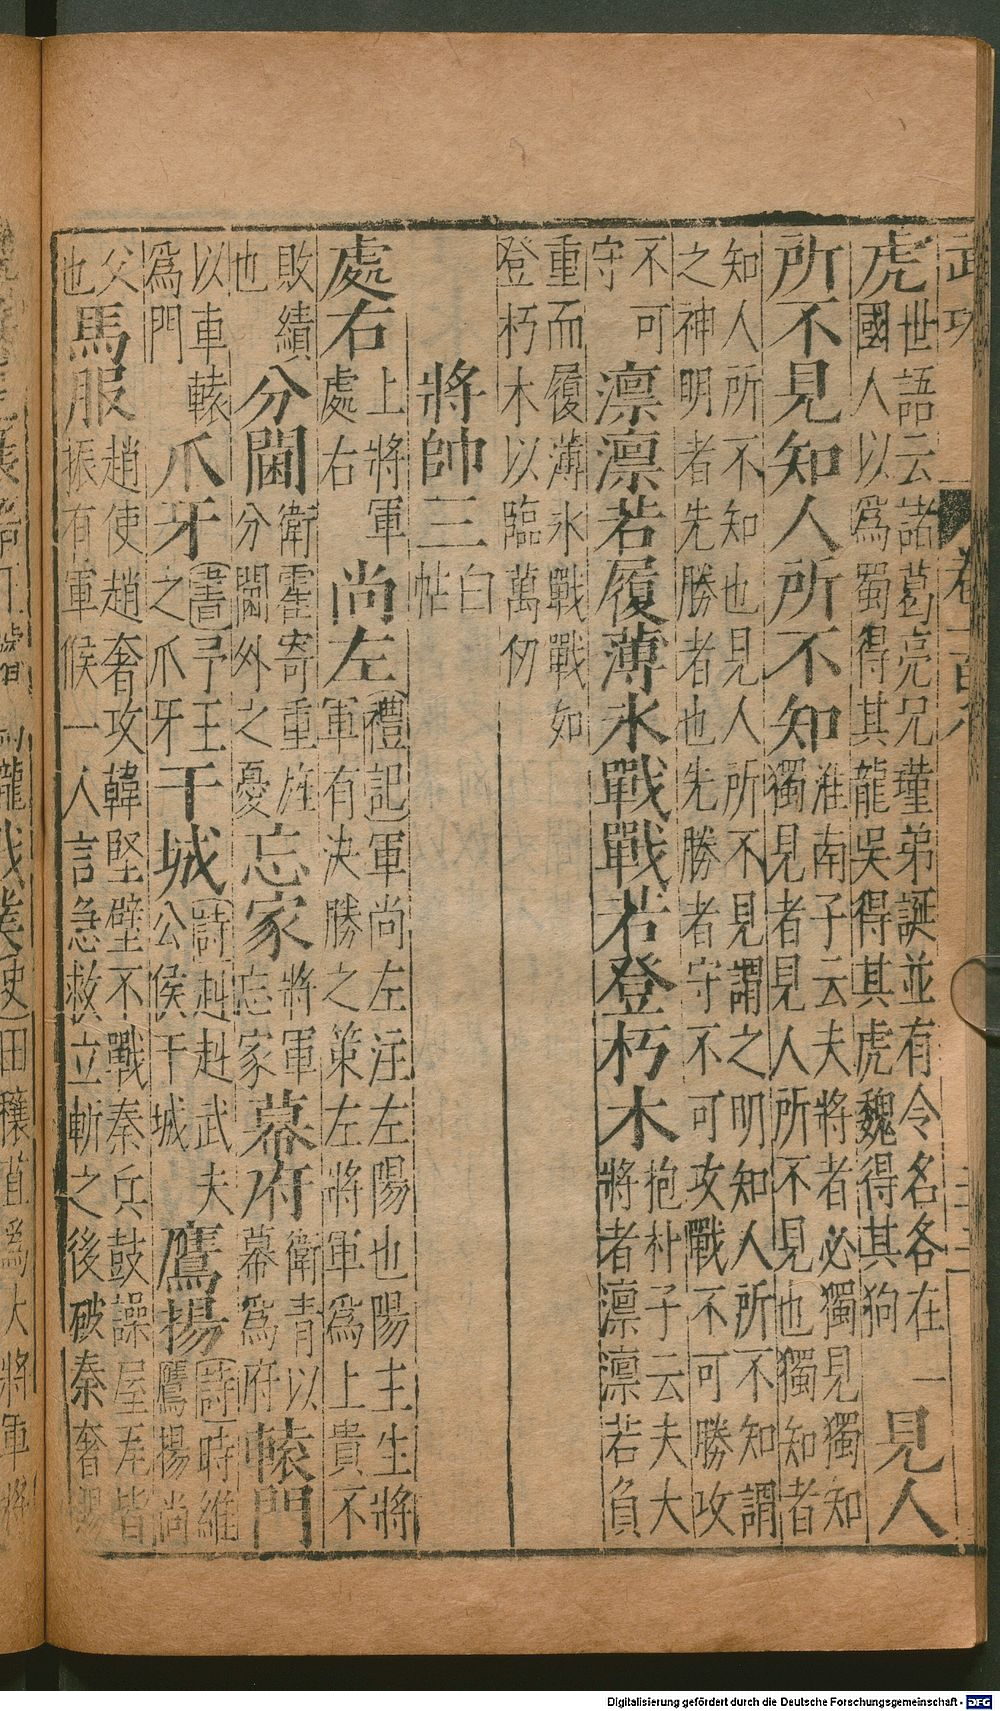 武功 卷一百
虎 世語云諸葛亮兄瑾弟誕並有令名各在一 國人以爲蜀得其龍吳得其虎魏得其狗 見人
所不見知人所不知 淮南子云夫將者必獨見獨知 獨見者見人所不見也獨知者
知人所不知也見人所不見謂之明知人所不知謂 之神明者先勝者也先勝者守不可攻戰不可勝攻
不可 守 凛凛若履薄氷戰戰若登朽木 抱朴子云夫大 將者凛凛若負
重而履薄氷戰戰如 登朽木以臨萬仞
將帥三 白帖
處右 上將軍 處右 尚左 禮記軍尚左注左陽也陽主生將 軍有決勝之策左將軍爲上貴不
敗績 也 分閫 衛霍寄重旌 分閫外之憂 忘家 將軍 忘家 幕府 衛青以 幕爲府 轅門
以車轅 爲門 爪牙 書予王 之爪牙 干城 詩赳赳武夫 公侯干城 鷹揚 詩時維 鷹揚尚
父 也 馬服 趙使趙奢攻韓堅壁不戰秦兵鼓譟屋瓦皆 振有軍候一人言急救立斬之後破秦奢賜
史田穰苴爲大將軍將
Digitalisierung gefördert durch die Deutsche Forschungsgemeinschaft - DFG